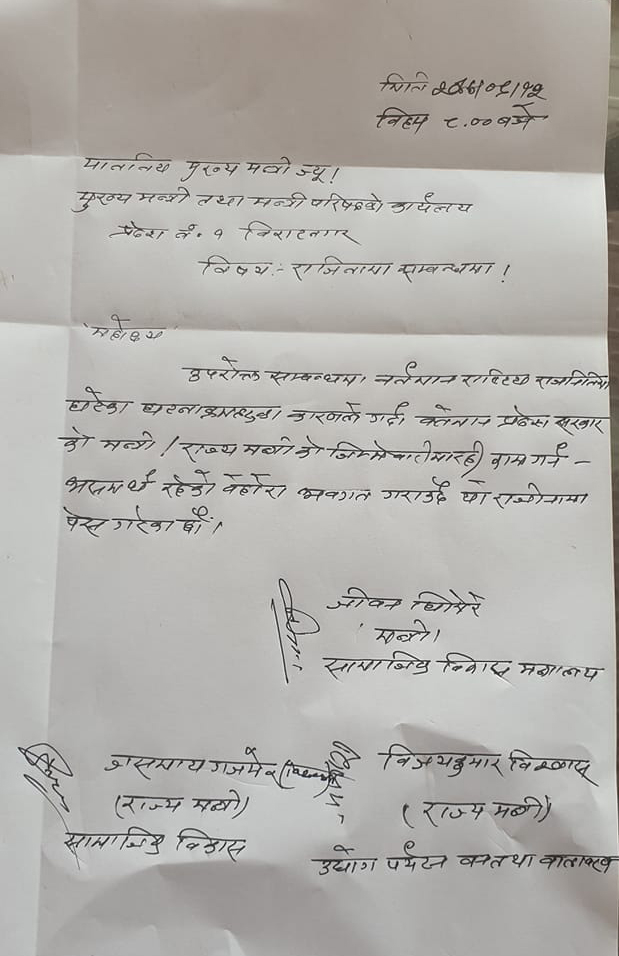 मिति
बिहान ८.०० बजे
माननिय मुख्य मन्त्री ज्यू!
मुख्य मन्त्री तथा मन्त्री परिषदको कार्यलय
प्रदेश नं. १ विराटनगर
विषय:- राजिनामा सम्बन्धमा!
महोदय
उपरोक्त सम्बन्धमा वर्तमान राष्ट्रिय राजनितिमा
घटेका घटनाक्रमहरुका कारणले गर्दा वर्तमान प्रदेश सरकार
को मन्त्री / राज्य मन्त्री को जिम्मेवारीमा रही काम गर्न -
असमर्थ रहेको वेहोरा अवगत गराउदै यो राजीनामा
पेस गरेका छौं।
जीवन घिमिरे
मन्त्री।
सामाजिक विकास मन्त्रालय
जसमाया गजमेर
विजयकुमार विश्वास
(राज्य मन्त्री)
(राज्य मन्त्री)
सामाजिक विकास
उद्योग पर्यटन वन तथा वातावरण